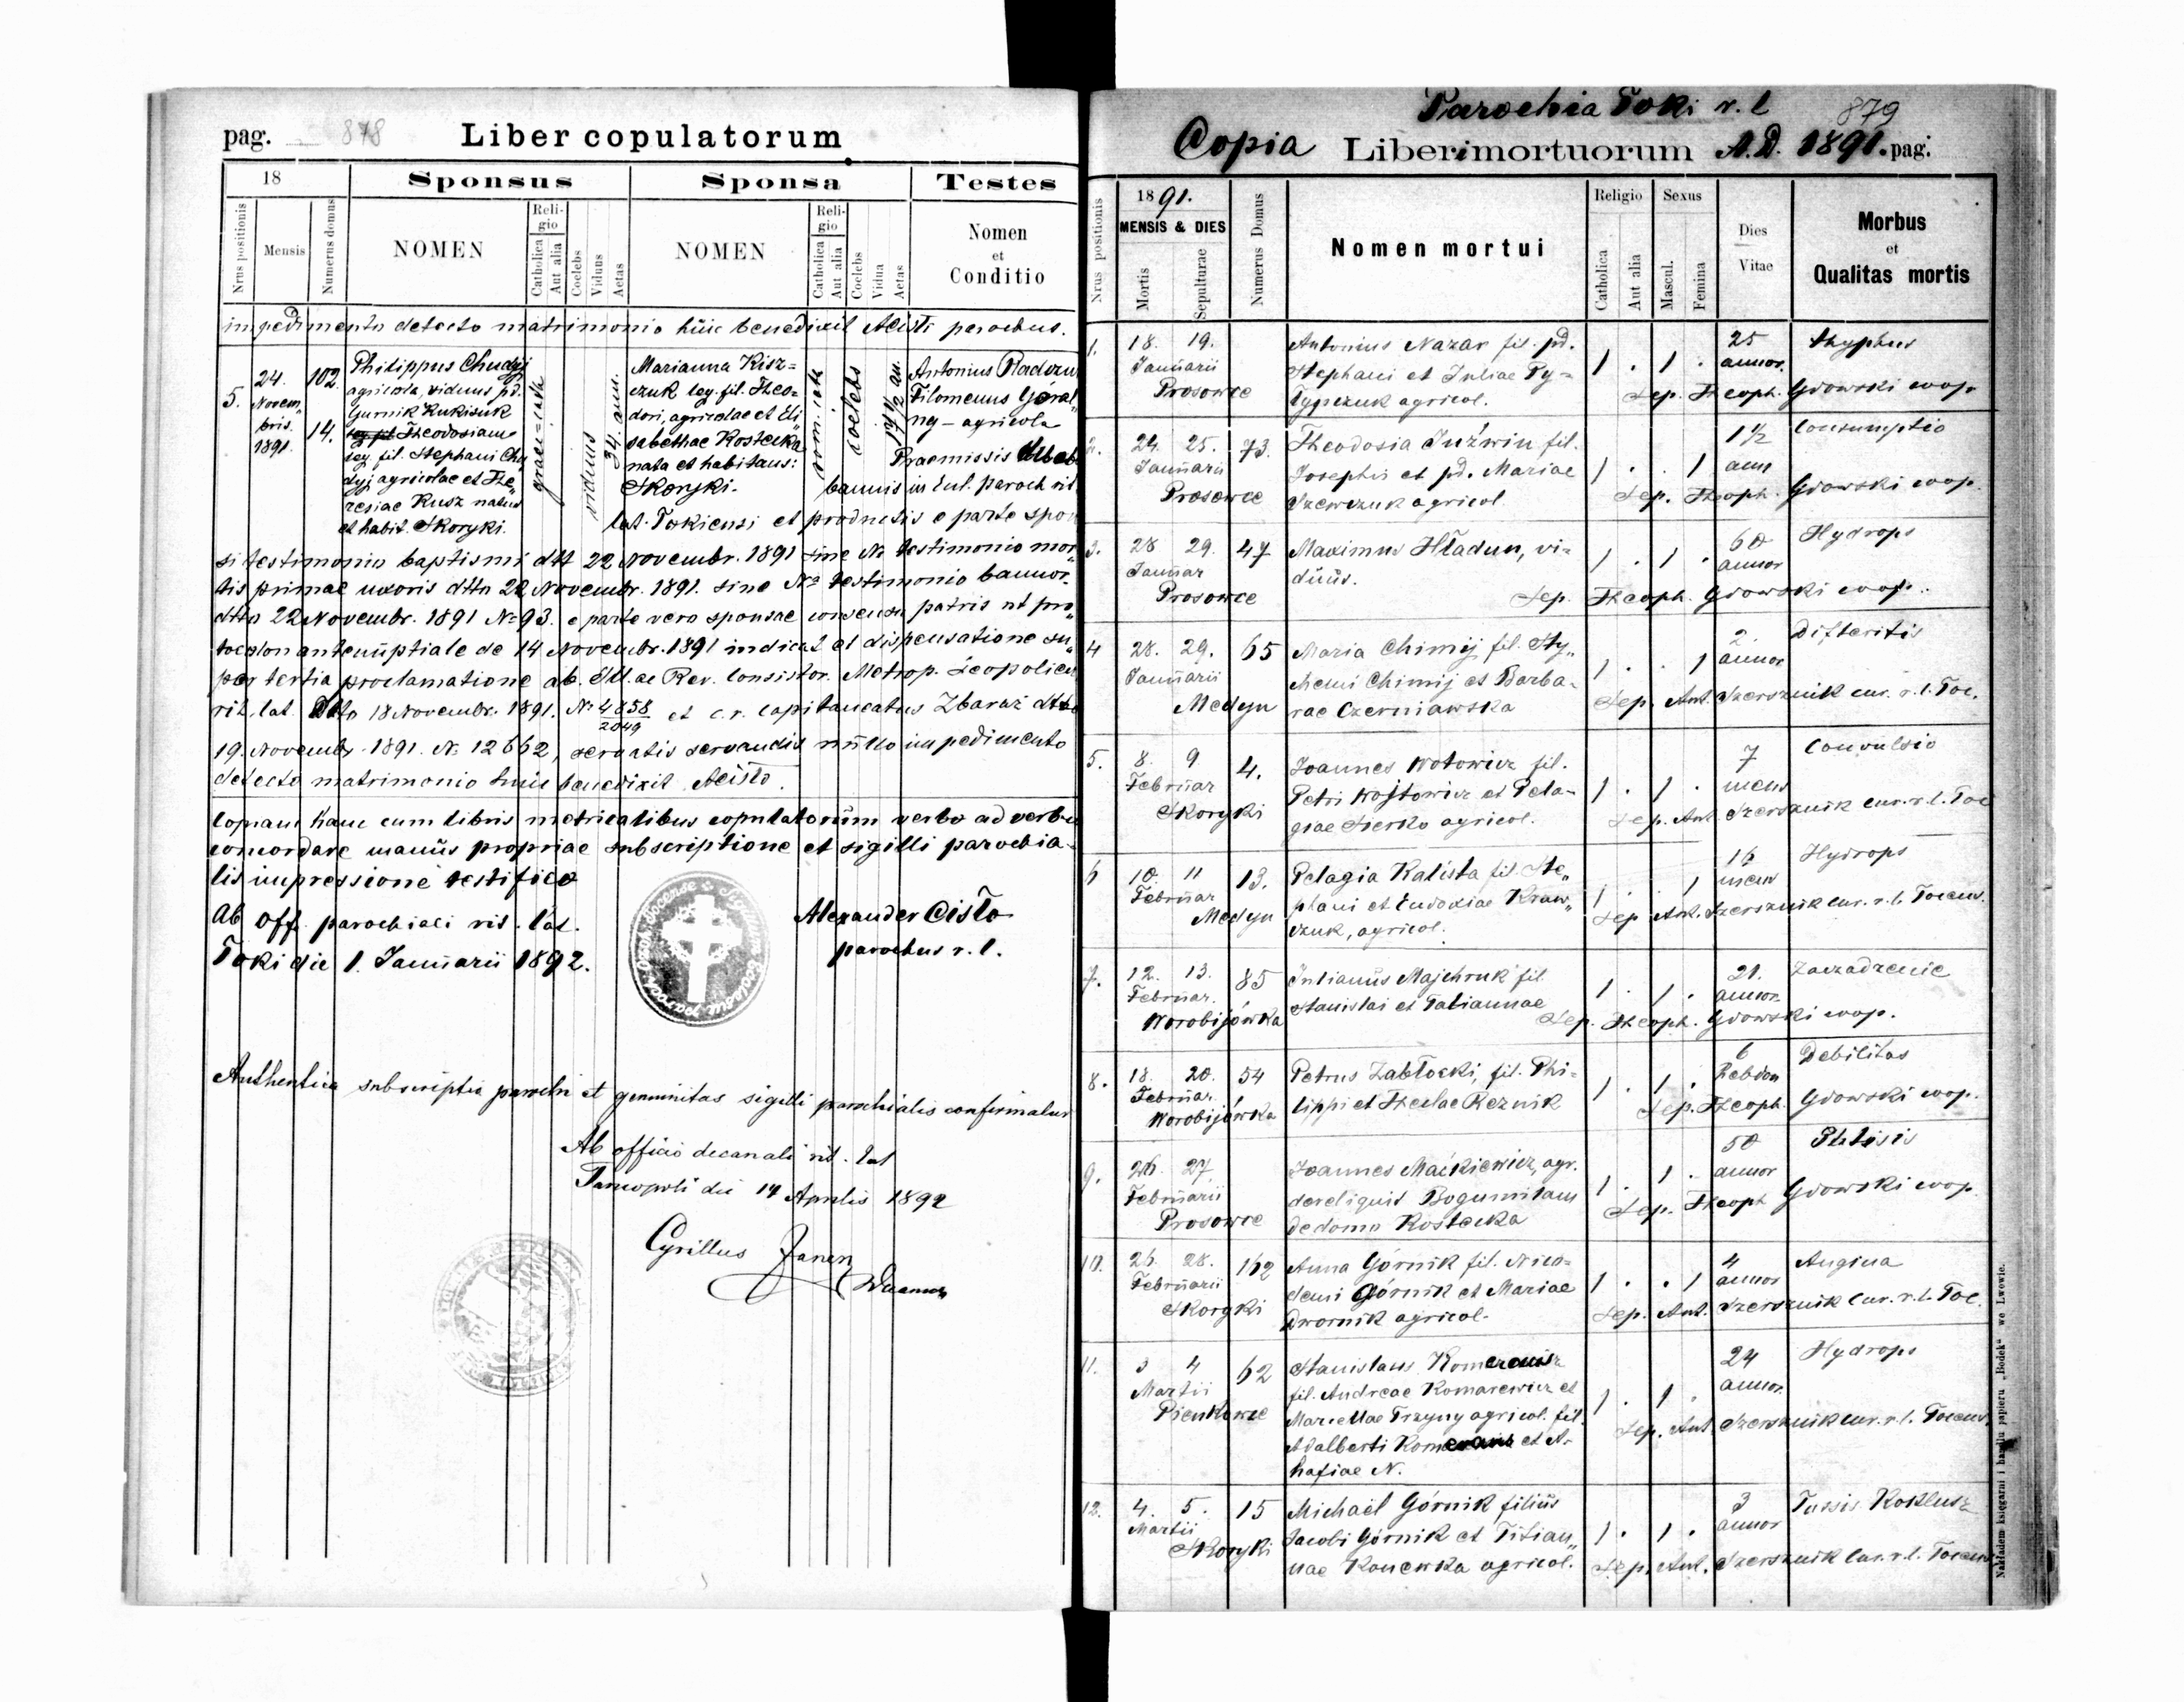 pag. 878 Liber copulatorum
18 Sponsus Sponsa Testes
Nrus positionis Mensis Numerus domus NOMEN Religio Catholica Aut alia Coelebs Viduus Aetas NOMEN Religio Catholica Aut alia Coelebs Vidua Aetas Nomen et Conditio
impedimento detecto matrimonio huic benedixit Acisto parochus.
5. 24. Novembris 1891 102. 14.
Philippus Chudyj
agricola, viduus pd.
Gurnik Kukiuk
leg. fil. Theodosiam
leg. fil. Stephani Chu„
dyj agricolae et The„
resiae Kusz natus
et habit. Skoryki.
graeci-cath
viduus
34. ann.
Marianna Kisz=
czuk leg. fil. Theo=
dori, agricolae et Eli
sabethae Kostecka
nata et habitans:
Skoryki.
rom. cath
coelebs
17 1/2 an.
Antonius Radzun
Filomenus Góral„
ng - agricola
Praemissis
bannis in Eccl. paroch rit
lat. Tokiensi et productis e parte spon
si testimonio baptismi dtt 22 Novembr. 1891 sine No testimonio mor„
tis primae uxoris dtto 22 Novembr. 1891. sine No testimonio bannor.
dtto 22 Novembr. 1891 No 93. e parte vero sponsae consensu patris ut pro„
tocolon antenuptiale de 14 Novembr. 1891 indicat et dispensatione su„
per tertia proclamatione ab. Ill.ae Rev. Consistor. Metrop. Leopolien
rit. lat. Dtto 18 Novembr. 1891. No 4858/2049 et c.r. Capitaneatus Zbaraż dtto
19. Novembr 1891. No 12662, servatis servandis nullo impedimento
detecto matrimonio huic benedixit Acisto.
Copiam hanc cum libris metricalibus copulatorum verbo ad verbu
concordare manus propriae subscriptione et sigilli parochia-
lis impressione testifico
Ab off. parochiali rit. lat. Alexander Cisto
Toki die 1. Januarii 1892. parochus r. l.
Authentica subscriptio parochi et genuinitas sigilli parochialis confirmatur
Ab officio decanali rit. lat
Tarnopoli die 14 Aprilis 1892
Cyrillus Janer
Decanus
Parochia Toki r. l 879
Copia Liber mortuorum A.D. 1891. pag.
Nrus positionis 1891. MENSIS & DIES Mortis Sepulturae Numerus Domus Nomen mortui Religio Catholica Aut alia Sexus Mascul. Femina Dies Vitae Morbus et Qualitas mortis
1. 18. 19. Antonius Nazar fil. pd. 1 . 1 . 25 thyphus
Januarii Stephani et Juliae Ty= annor.
Prosowce agricol. Sep. Theoph. Gdowski coop.
2. 24. 25. 73. Theodosia Juźwin fil. 1 . . 1 1 1/2 Consumptio
Januarii Josephi et pd. Mariae anni
Prosowce Szewczuk agricol. Sep. Theoph. Gdowski coop.
3. 28 29. 47 Maximus Hładun, vi= 1 . 1 . 60 Hydrops
Januar duus. annor
Prosowce Sep. Theoph. Gdowski coop.
4 28. 29. 65 Maria Chimij fil. Ste„ 1 . . 1 2. Difteritis
Januarii Chimij et Barba- annor
Medyn rae Czerniawska Sep. Ant. Szersznik cur. r. l. Toc.
5. 8. 9 4. Joannes Wotowicz fil. 1 . 1 . 7 Convulsio
Februar Petri Wojtowicz et Pela- mens
Skoryki giae Sierko agricol. Sep. Ant. Szersznik cur. r. l. Toc
6 10. 11 13. Pelagia Kalista fil. Ste„ 1 . 1 16 Hydrops
Februar phani et Eudoxiae Kraw„ mens
Medyn czuk, agricol. Sep Ant. Szersznik cur. r. l. Tocens.
7. 12. 13. 85 Julianus Majchruk fil 1 . 1 . 21. Zaczadzenie
Februar. Stanislai et Tatiannae annor.
Worobijówka Sep. Theoph. Gdowski coop.
8. 18. 20. 54 Petrus Zabłocki, fil. Phi= 1 . 1 . 6 Debilitas
Februar. lippi et Theclae Reznik hebdom
Worobijówka Sep. Theoph. Gdowski coop.
9. 26. 27. Joannes Maćkiewicz, agr. 1 . 1 . 50 Phtisis
Februarii dereliquit Bogumilam annor
Prosowce de domo Kostecka Sep. Theoph Gdowski coop
10. 26. 28. 162 Anna Górnik fil. Nico= 1 . . 1 4 Angina
Februarii demi Górnik et Mariae annor
Skoryki Dwornik agricol. Sep. Ant. Szersznik cur. r. l. Toc.
11. 3 4 62 Stanislaus 1 . 1 . 24 Hydrops
Martii fil. Andreae Komarewicz et annor.
Pienkowce Mariellae Trzyny agricol. fil. Sep. Ant. Szersznik cur. r. l. Tocens.
Adalberti et A-
hafiae N.
12. 4. 5. 15 Michaël Górnik filius 1 . 1 . 3 Tussis Koklusz
Martii Jacobi Górnik et Titian„ annor
Skoryki nae Konewka agricol. Sep. Ant. Szersznik cur. r. l. Tocens
Nakładem księgarni i handlu papieru „Bodek“ we Lwowie.